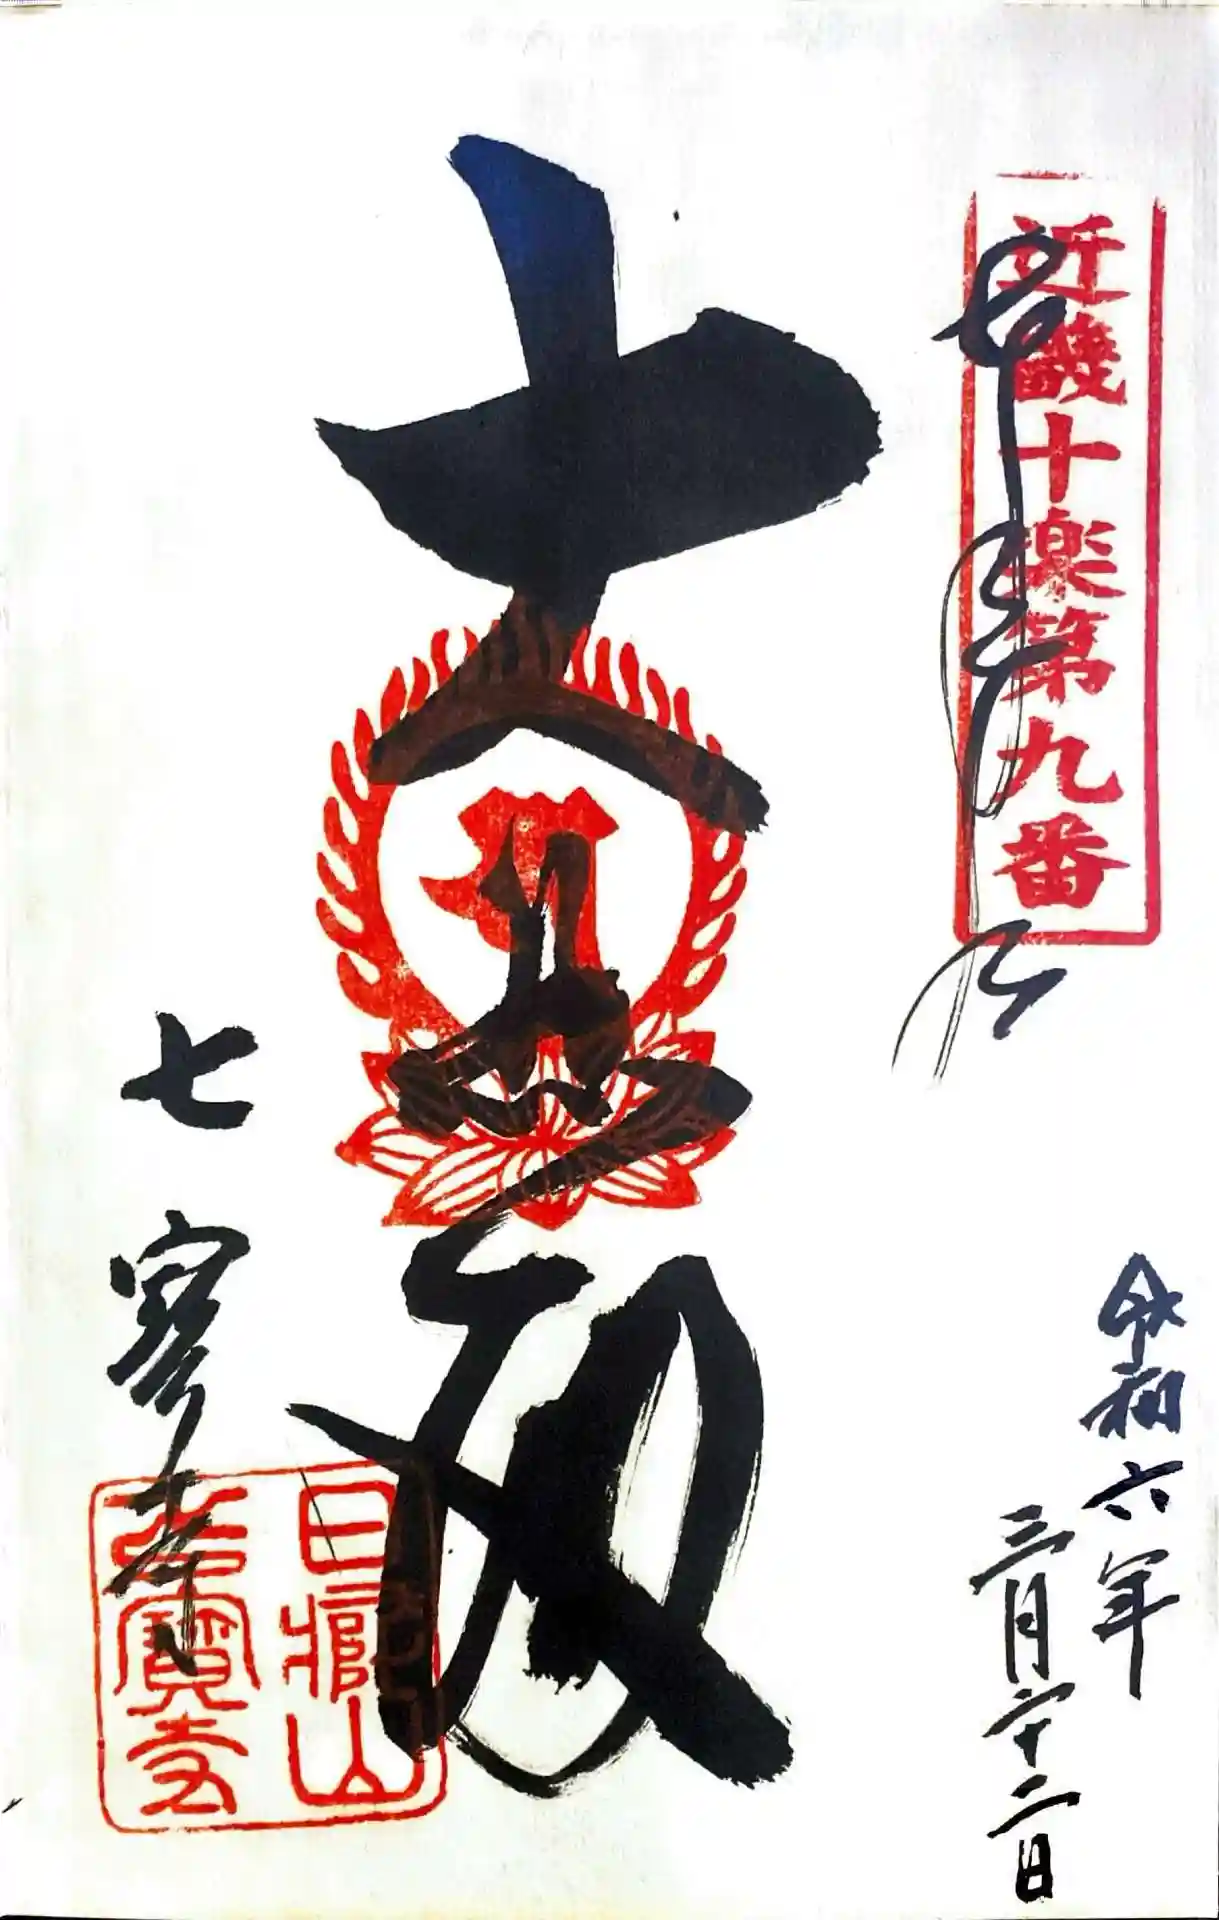 近畿十楽第九番
奉拝
令和六年
三月廿二日
大悲殿
七宝寺
日瘤山
七寶寺